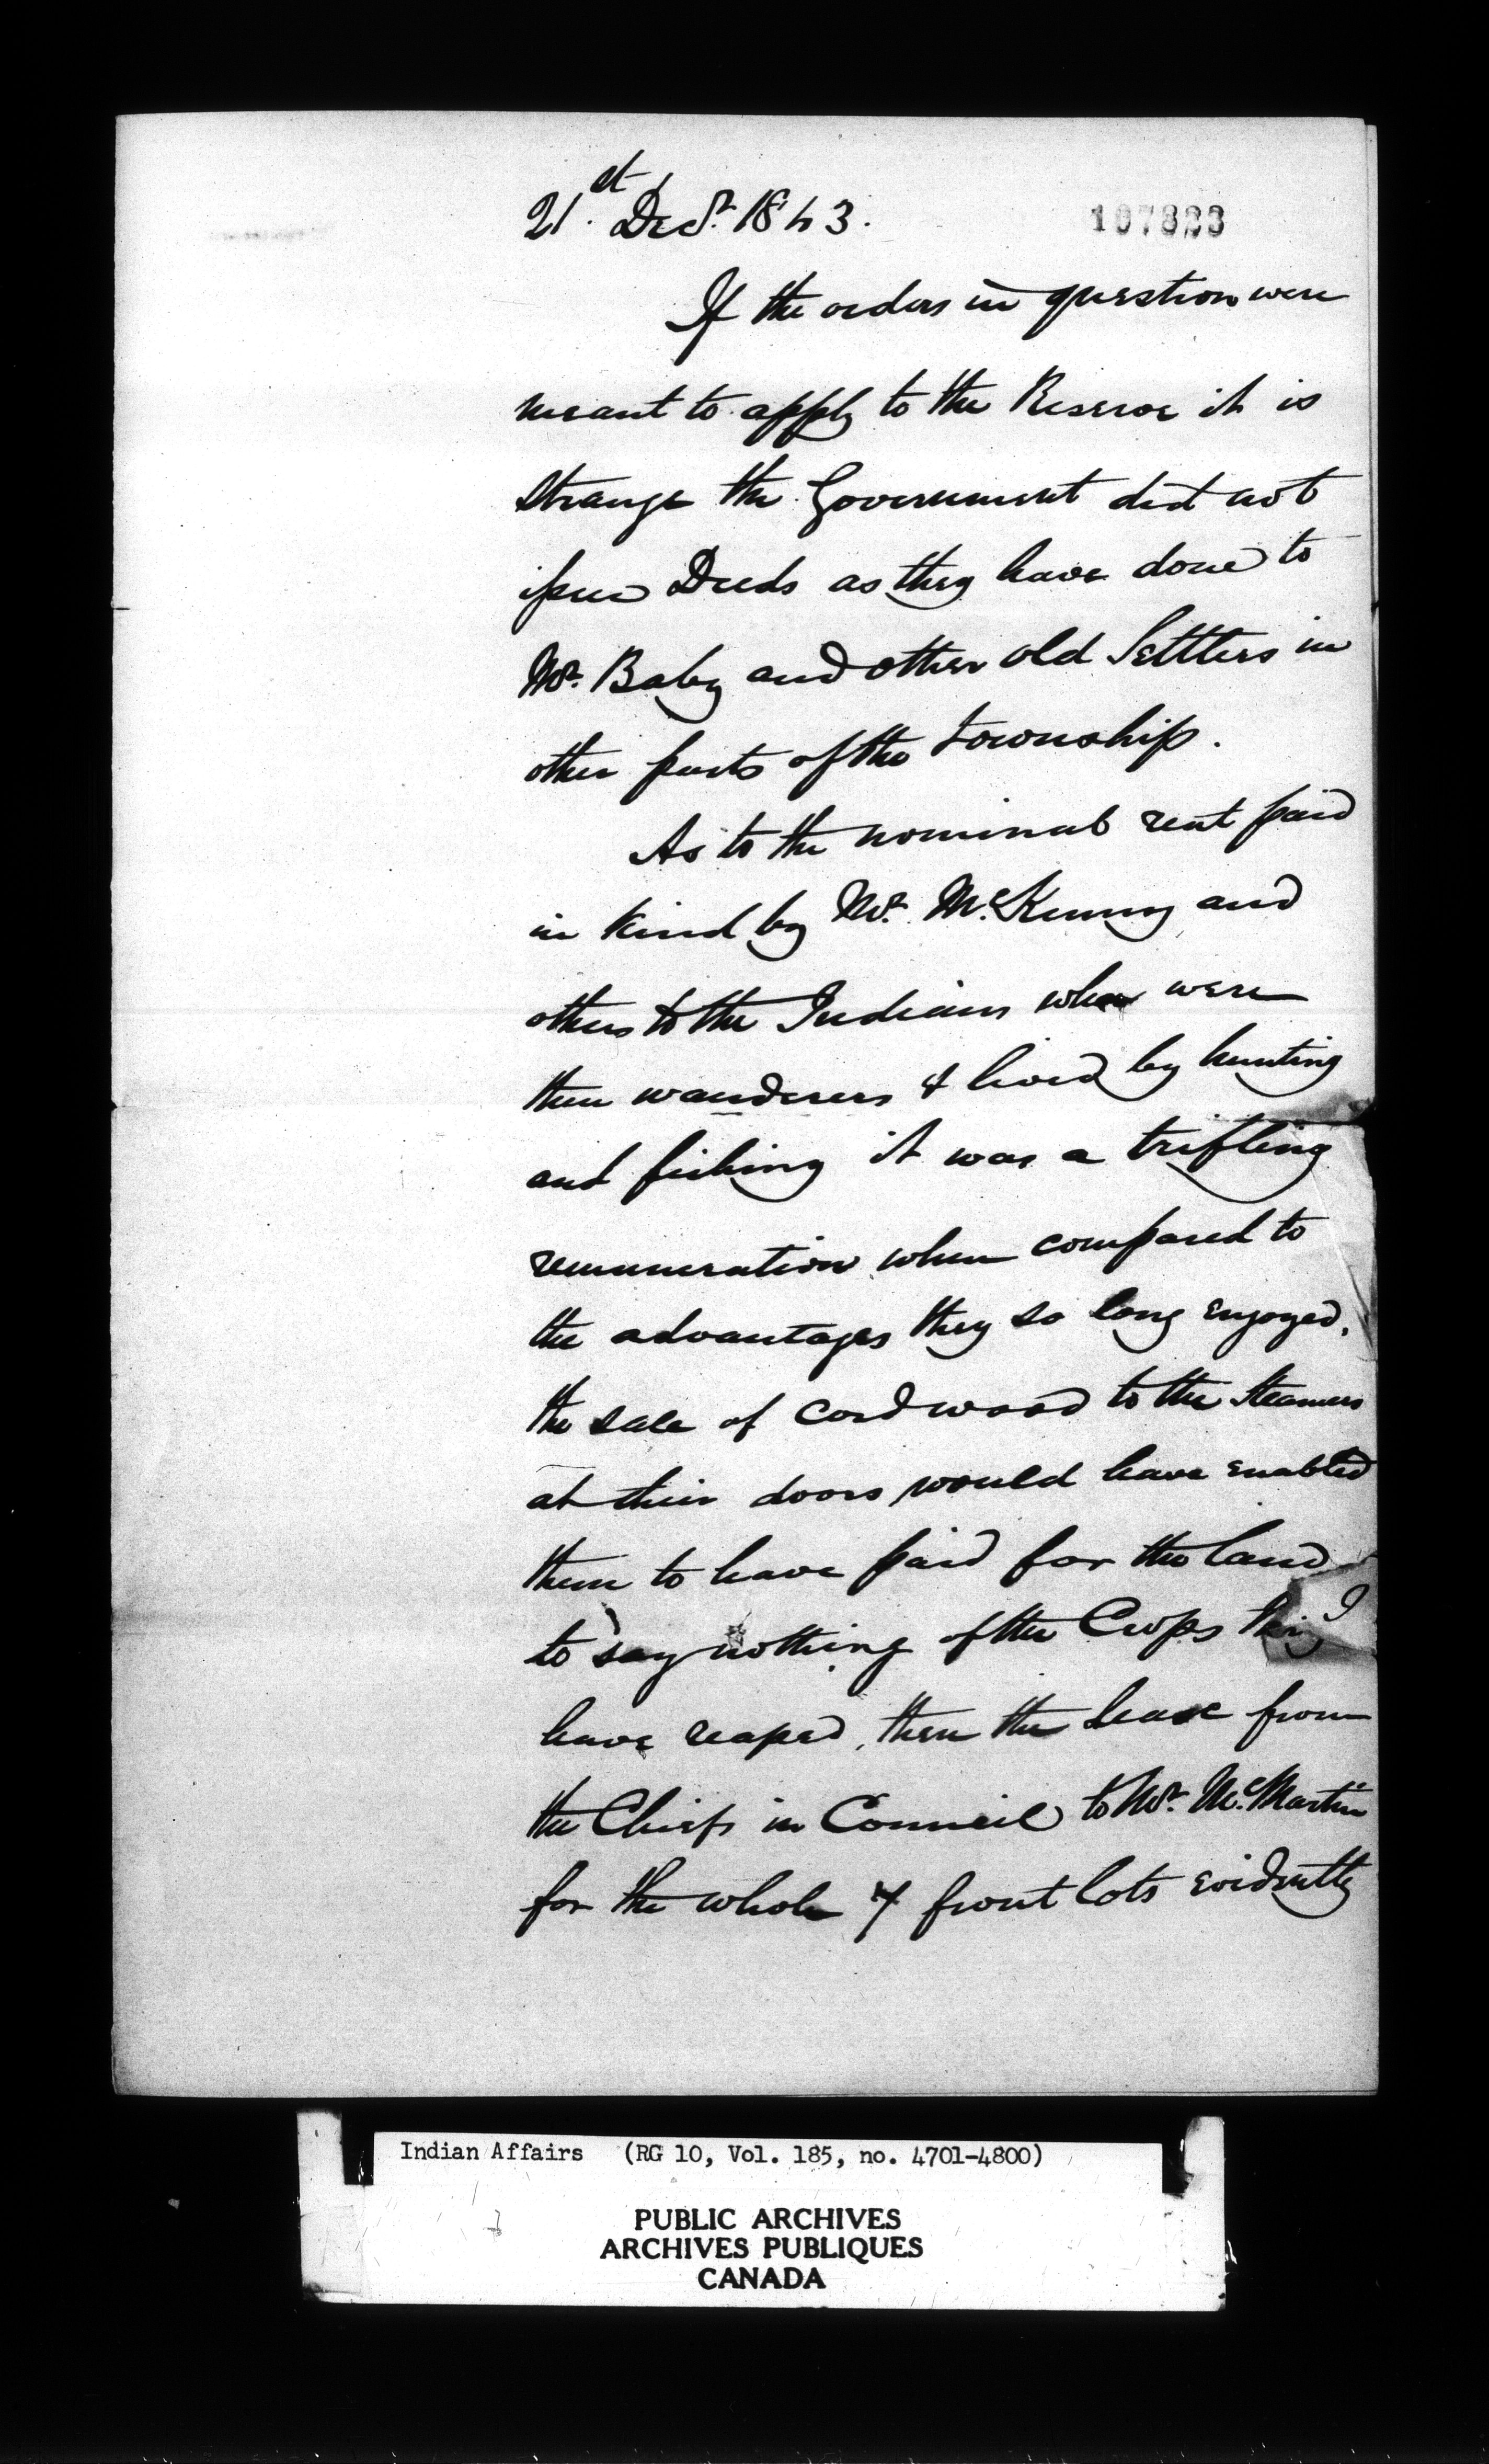 21st Decr. 1843.
107823
If the orders in question were
meant to apply to the Reserve it is
strange the Government did not
issue Deeds as they have done to
Mr. Baby and other old Settlers in
other parts of the township.
As to the nominal rent paid
in kind by Mr. McKenny and
others to the Indians who were
then wanderers & lived by hunting
and fishing it was a trifling
remuneration when compared to
the advantages they so long enjoyed,
the sale of Cordwood to the Steamers
at their doors would have enabled
them to have paid for the land
to say nothing of the Crops they
have reaped, then the lease from
the Chiefs in Council to Mr. McMartin
for the whole 7 front lots evidently
Indian Affairs (RG 10, Vol. 185, no. 4701-4800)
PUBLIC ARCHIVES
ARCHIVES PUBLIQUES
CANADA